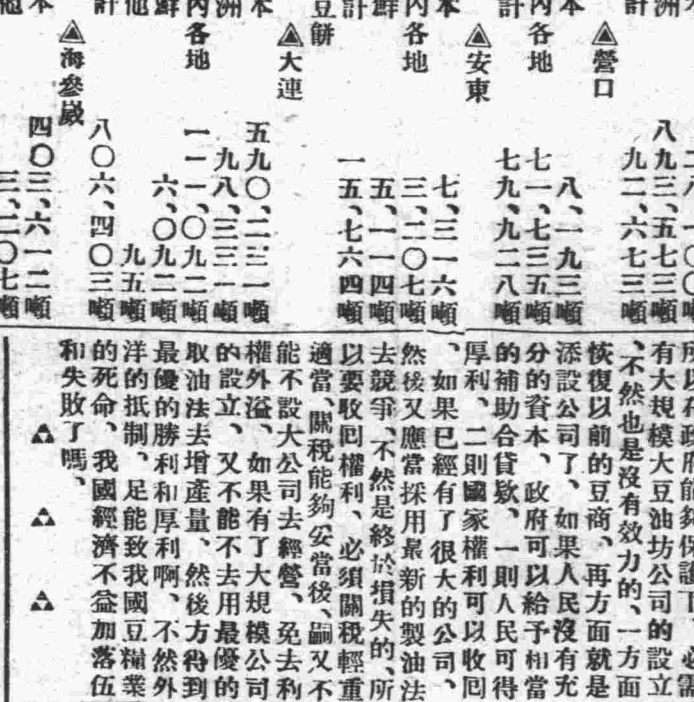 洲 八九三、五七三噸
計 九二、六七三噸
▲營口
本 八、一九三噸
內各地 七一、七三五噸
計 七九、九二八噸
▲安東
本 七、三一六噸
內各地 三、二〇七噸
鮮 五、一一四噸
計 一五、七六四噸
豆餅
▲大連
本 五九〇、二三一噸
洲 九八、三三一噸
內各地 一一一、〇九二噸
鮮 六、〇九二噸
他 九五噸
計 八〇六、四〇三噸
▲海參崴
本 四〇三、六一二噸
他 三、二〇七噸
所以在政府能夠保護下、必需
有大規模大豆油坊公司的設立
、不然也是沒有效力的、一方面
恢復以前的豆商、再方面就是
添設公司了、如果人民沒有充
分的資本、政府可以給予相當
的補助合貸欵、一則人民可得
厚利、二則國家權利可以收囘
、如果已經有了很大的公司、
然後又應當採用最新的製油法
去競爭、不然是終於損失的、所
以要收囘權利、必須關稅輕重
適當、關稅能夠妥當後、嗣又不
能不設大公司去經營、免去利
權外溢、如果有了大規模公司
的設立、又不能不去用最優的
取油法去增產量、然後方得到
最優的勝利和厚利啊、不然外
洋的抵制、足能致我國豆糧業
的死命、我國經濟不益加落伍
和失敗了嗎、